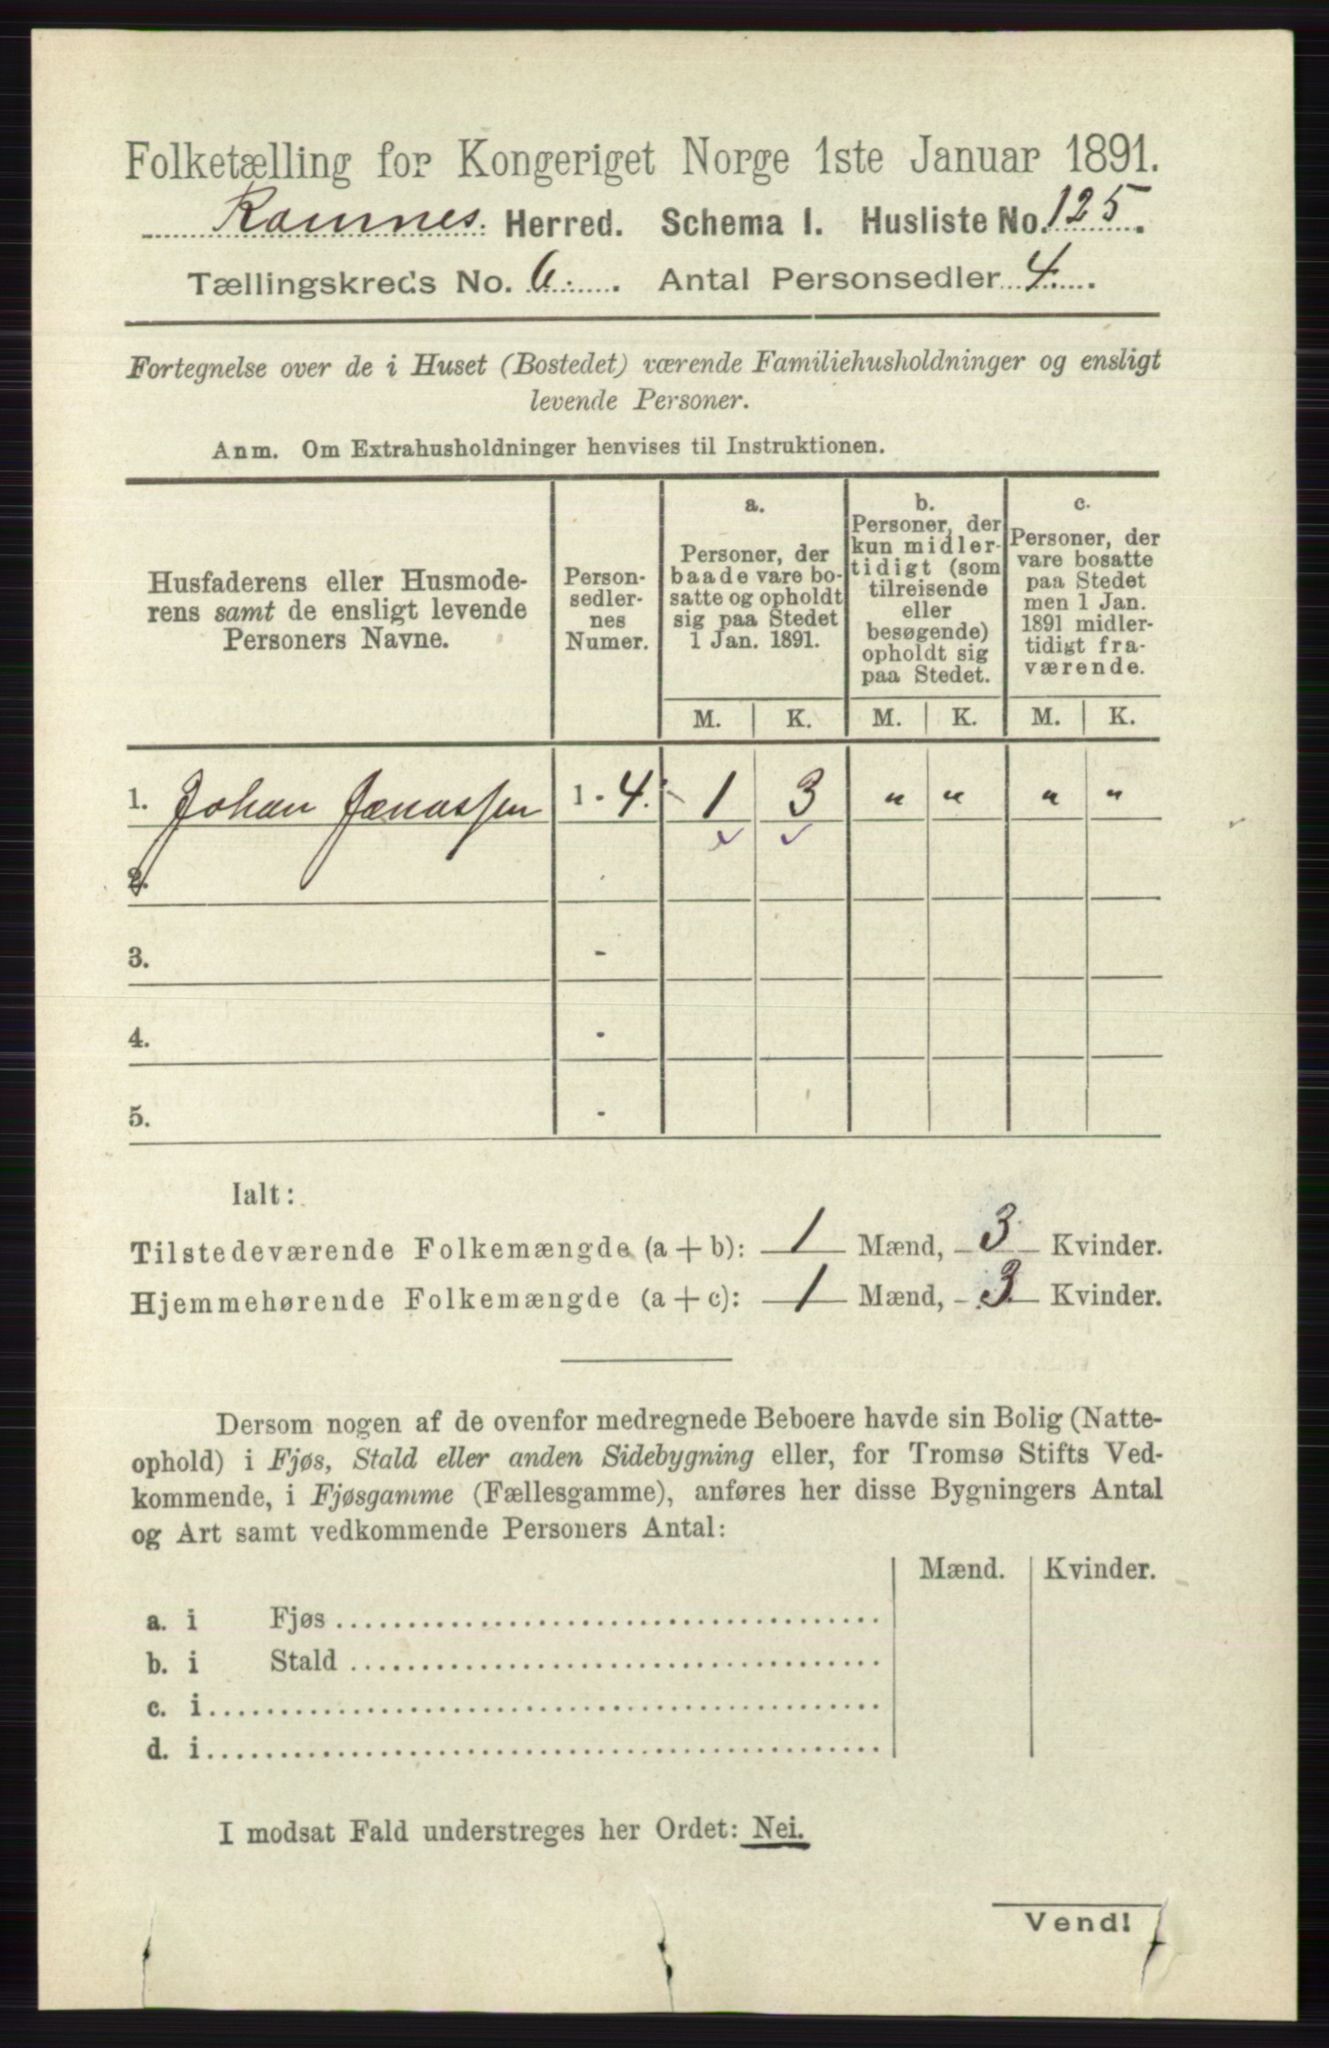 Folketælling for Kongeriget Norge 1ste Januar 1891.
Ramnes Herred. Schema I. Husliste No. 125.
Tællingskreds No. 6. Antal Personsedler 4.
Fortegnelse over de i Huset (Bostedet) værende Familiehusholdninger og ensligt
levende Personer.
Anm. Om Extrahusholdninger henvises til Instruktionen.
Husfaderens eller Husmode-
rens samt de ensligt levende
Personers Navne.
Person-
sedler-
nes
Numer.
a.
Personer, der
baade vare bo-
satte og opholdt
sig paa Stedet
1 Jan. 1891.
b.
Personer, der
kun midler-
tidigt (som
tilreisende
eller
besøgende)
opholdt sig
paa Stedet.
c.
Personer, der
vare bosatte
paa Stedet
men 1 Jan.
1891 midler-
tidigt fra-
værende.
M. K. M. K. M. K.
1. Johan Jonassen 1 - 4. 1 3 " " " "
2.
3. -
4. -
5. -
Ialt:
Tilstedeværende Folkemængde (a + b): 1 Mænd, 3 Kvinder.
Hjemmehørende Folkemængde (a + c): 1 Mænd, 3 Kvinder.
Dersom nogen af de ovenfor medregnede Beboere havde sin Bolig (Natte-
ophold) i Fjøs, Stald eller anden Sidebygning eller, for Tromsø Stifts Ved-
kommende, i Fjøsgamme (Fællesgamme), anføres her disse Bygningers Antal
og Art samt vedkommende Personers Antal:
Mænd. Kvinder.
a. i Fjøs
b. i Stald
c. i
d. i
I modsat Fald understreges her Ordet: Nei.
Vend!